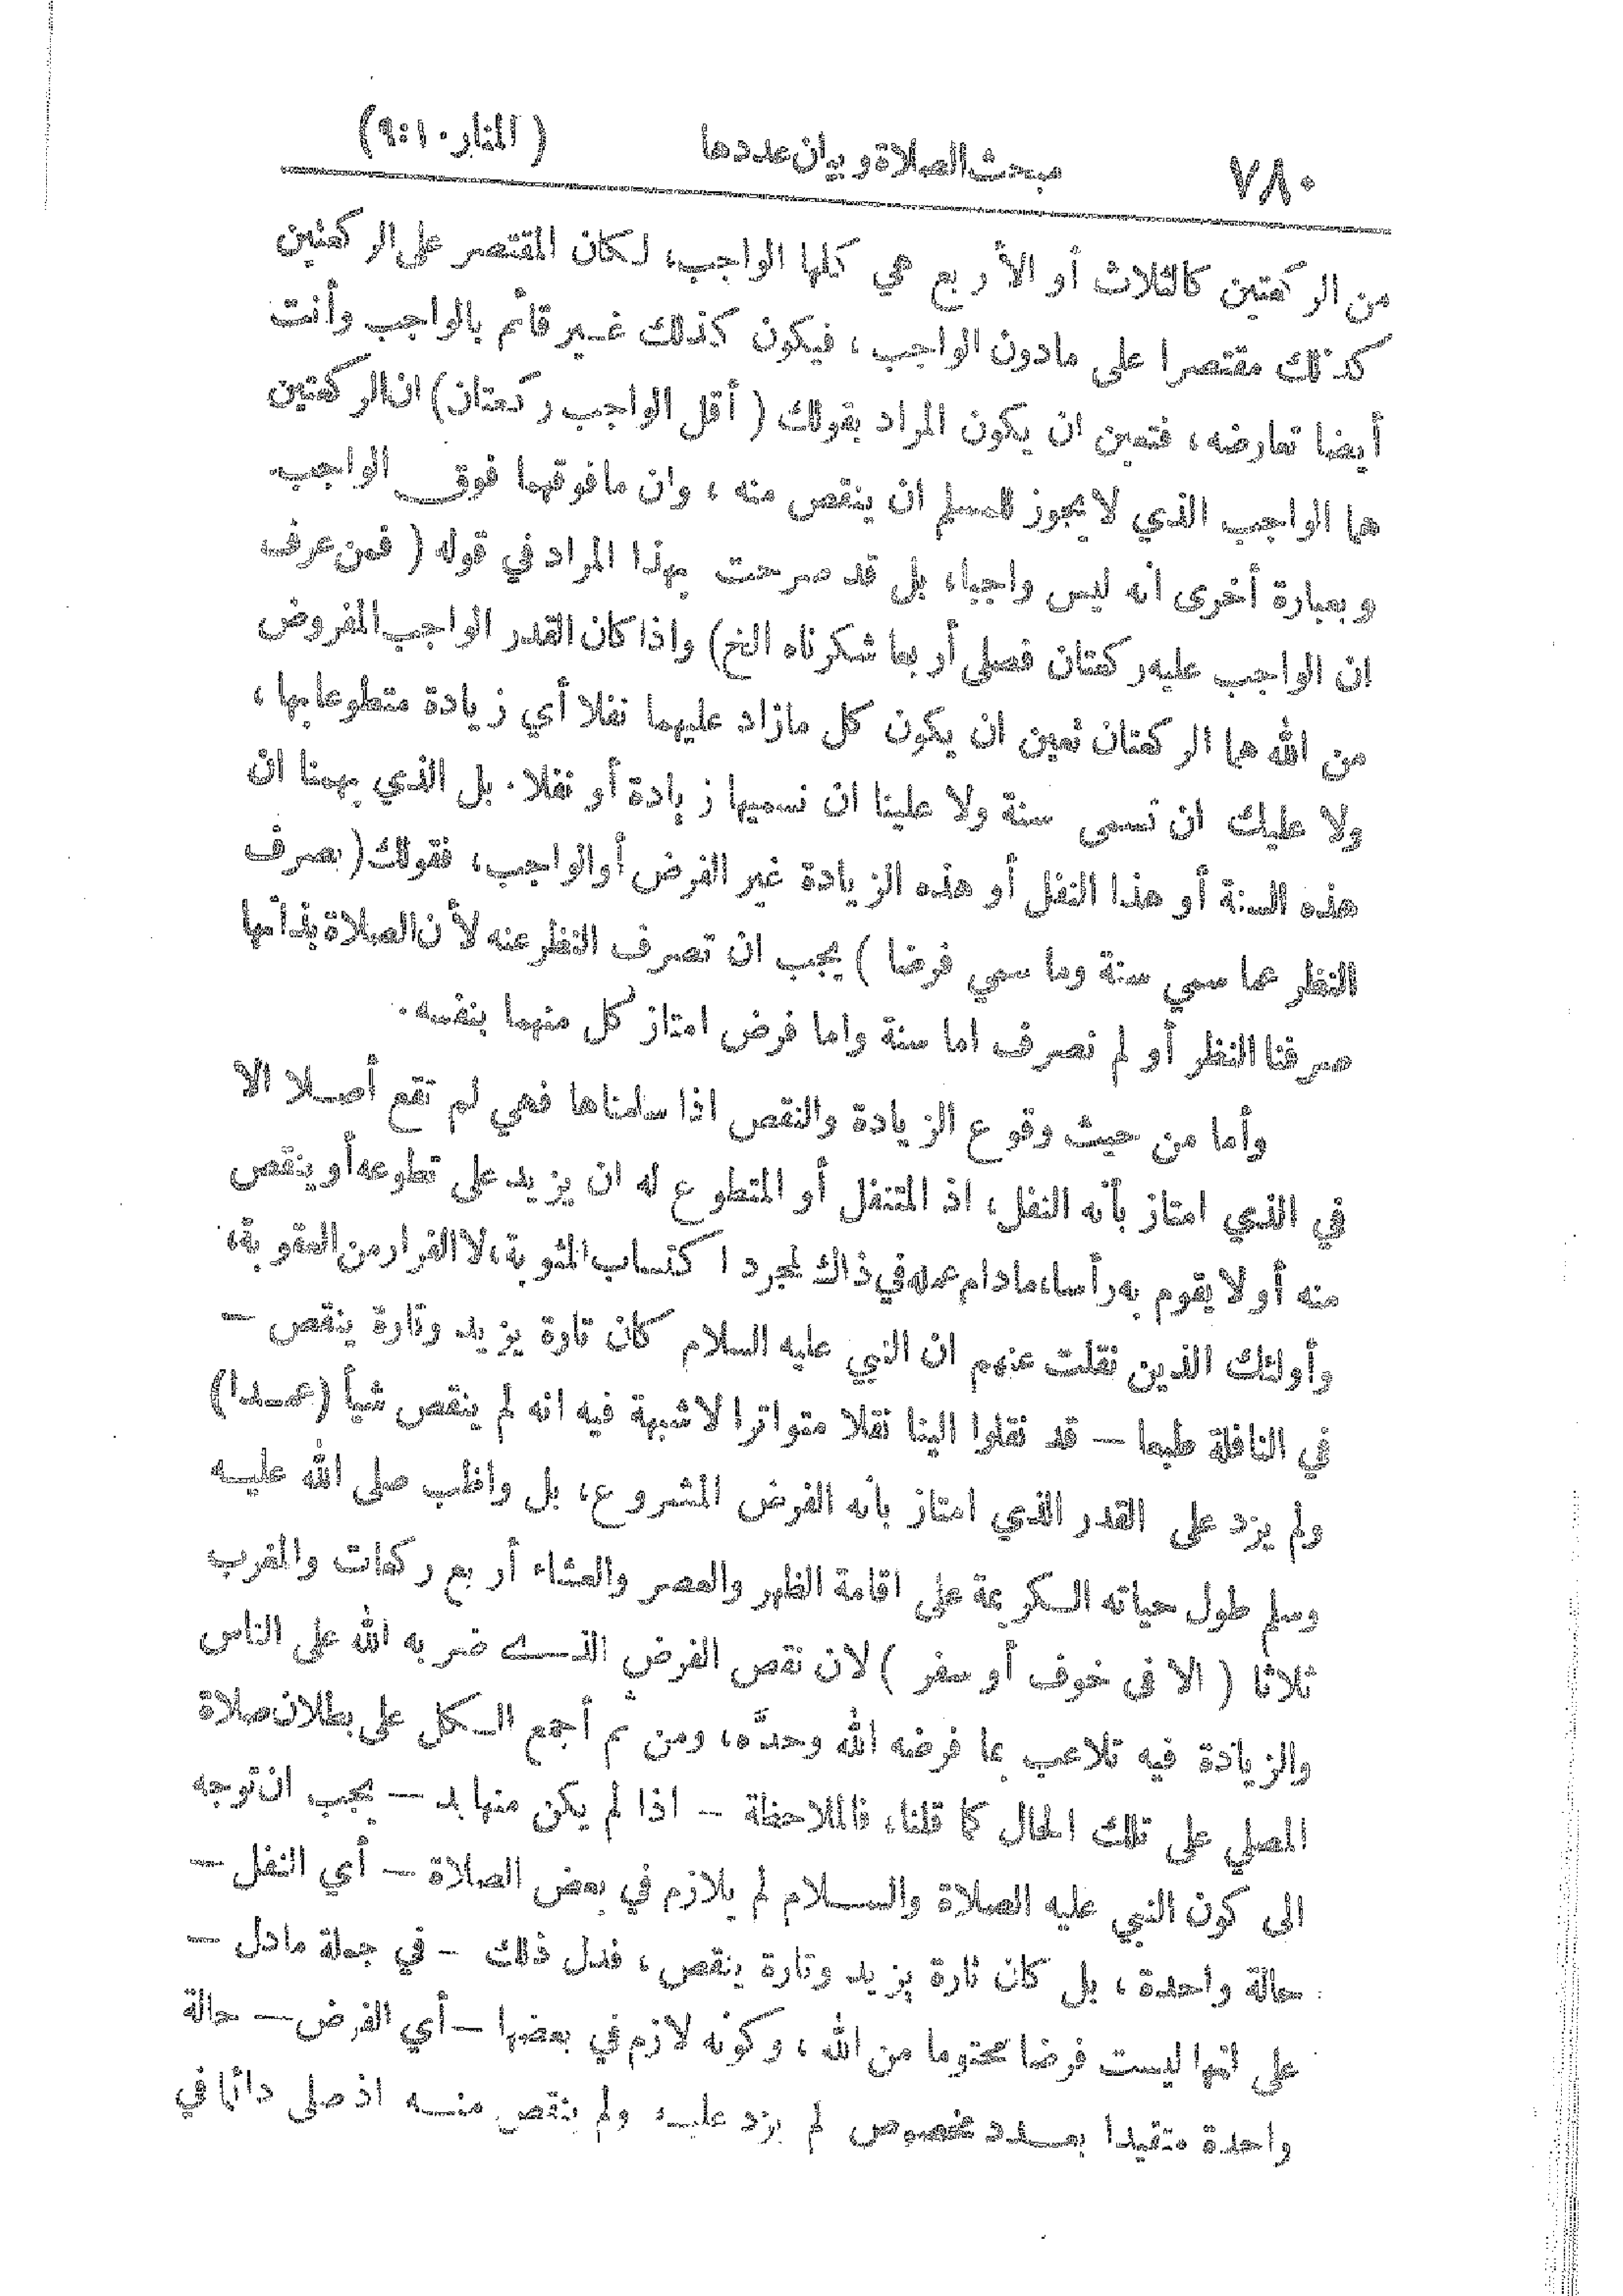 ٧٨٠ مبحث الصلاة وبيان عددها ( المنار ١٠ : ٩)
من الركعتين كالثلاث أو الأربع هي كلها الواجب، لكان المقتصر على الركعتين
كذلك مقتصرا على مادون الواجب ، فيكون كذلك غير قائم بالواجب وأنت
أيضا تعارضه، فتعين ان يكون المراد بقولك ( أقل الواجب ركعتان) ان الركعتين
هما الواجب الذي لا يجوز للمسلم ان ينقص منه ، وان مافوقهما فوق الواجب
وبعبارة أخرى انه ليس واجبا، بل قد صرحت بهذا المراد في قوله ( فمن عرف
ان الواجب عليه ركعتان فصلى أربعا شكرناه الخ) واذا كان القدر الواجب المفروض
من الله هما الركعتان تعين ان يكون كل مازاد عليهما نفلا أي زيادة متطوعا بها ،
ولا عليك ان تسمى سنة ولا علينا ان نسميها زيادة أو نفلا. بل الذي يهمنا ان
هذه السنة أو هذا النفل أو هذه الزيادة غير الفرض أوالواجب، فقولك ( بصرف
النظر عما سمي سنة وما سمي فرضا ) يجب ان تصرف النظر عنه لأن الصلاة بذاتها
صرفنا النظر أو لم نصرف اما سنة واما فرض امتاز كل منهما بنفسه.
وأما من حيث وقوع الزيادة والنقص اذا سلمناها فهي لم تقع أصلا الا
في الذي امتاز بأنه النفل، اذ المتنفل أو المتطوع له ان يزيد على تطوعه أو ينقص
منه أو لا يقوم به رأسا، مادام عمله في ذاك لمجرد اكتساب المثوبة، لا الفرار من العقوبة،
وأولئك الذين نقلت عنهم ان النبي عليه السلام كان تارة يزيد وتارة ينقص —
في النافلة طبعا — قد نقلوا الينا نقلا متواترا لاشبهة فيه انه لم ينقص شيأ (عمدا)
ولم يزد على القدر الذي امتاز بأنه الفرض المشروع، بل واظب صلى الله عليه
وسلم طول حياته الكريمة على اقامة الظهر والعصر والعشاء أربع ركعات والمغرب
ثلاثا ( الا في خوف أو سفر ) لان نقص الفرض الذي ضربه الله على الناس
والزيادة فيه تلاعب بما فرضه الله وحدّه، ومن ثم أجمع الكل على بطلان صلاة
المصلي على تلك الحال كما قلنا، فالملاحظة - اذا لم يكن منها بد — يجب ان توجه
الى كون النبي عليه الصلاة والسلام لم يلازم في بعض الصلاة — أي النفل —
حالة واحدة ، بل كان تارة يزيد وتارة ينقص ، فدل ذلك - في جملة مادل —
على انها ليست فرضا محتوما من الله ، وكونه لازم في بعضها — أي الفرض — حالة
واحدة متقيدا بعدد مخصوص لم يزد عليه ولم ينقص منه اذ صلى دائما في